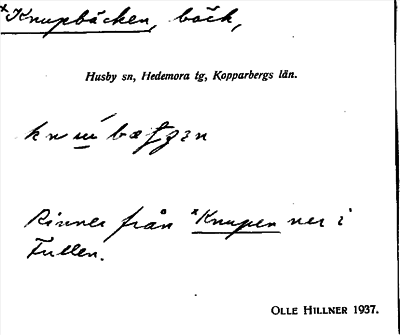 *Knupbäcken, bäck,
Husby sn, Hedemora tg, Kopparbergs län.
Rinner från *Knupen ner i
Fullen.
OLLE HILLNER 1937.